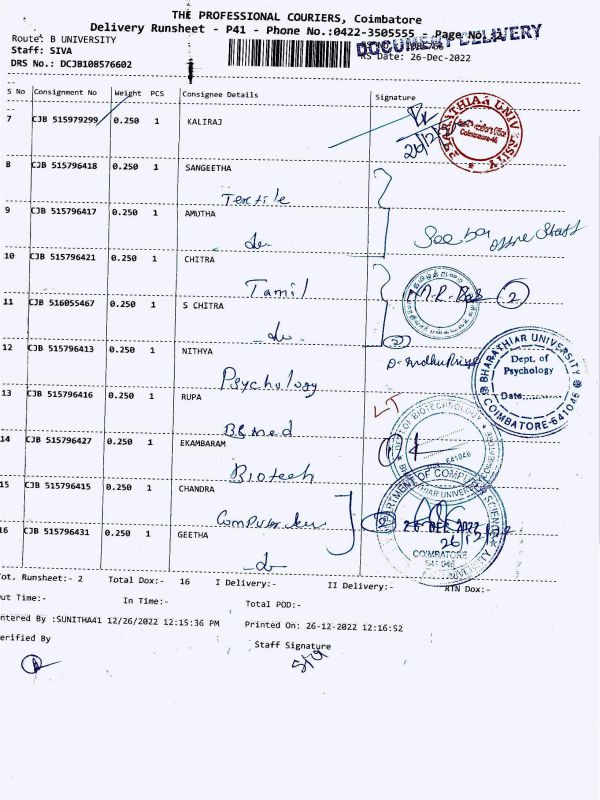 THE PROFESSIONAL COURIERS, Coimbatore
Delivery Runsheet - P41 - Phone No.:0422-3505555 - Page No.:
DOCUMENT DELIVERY
Route: B UNIVERSITY
Staff: SIVA
DRS No.: DCJB108576602
RS Date: 26-Dec-2022
S No Consignment No Weight PCS Consignee Details Signature
7 CJB 515979299 0.250 1 KALIRAJ
BHARATHIAR UNIVERSITY
Coimbatore-46
8 CJB 515796418 0.250 1 SANGEETHA
Textile
9 CJB 515796417 0.250 1 AMUTHA
-do-
office Staff
10 CJB 515796421 0.250 1 CHITRA
Tamil
2
11 CJB 516055467 0.250 1 S CHITRA
-do-
2
12 CJB 515796413 0.250 1 NITHYA
Psychology
BHARATHIAR UNIVERSITY
Dept. of
Psychology
Date:
COIMBATORE-641046
13 CJB 515796416 0.250 1 RUPA
14 CJB 515796427 0.250 1 EKAMBARAM
Biotech
OF BIOTECHNOLOGY
641046
15 CJB 515796415 0.250 1 CHANDRA
DEPARTMENT OF COMPUTER SCIENCE
26 DEC 2022
26/12/22
COIMBATORE
641 046
16 CJB 515796431 0.250 1 GEETHA
-do-
Tot. Runsheet:- 2 Total Dox:- 16 I Delivery:- II Delivery:- RTN Dox:-
Out Time:- In Time:- Total POD:-
ntered By :SUNITHA41 12/26/2022 12:15:36 PM Printed On: 26-12-2022 12:16:52
erified By Staff Signature